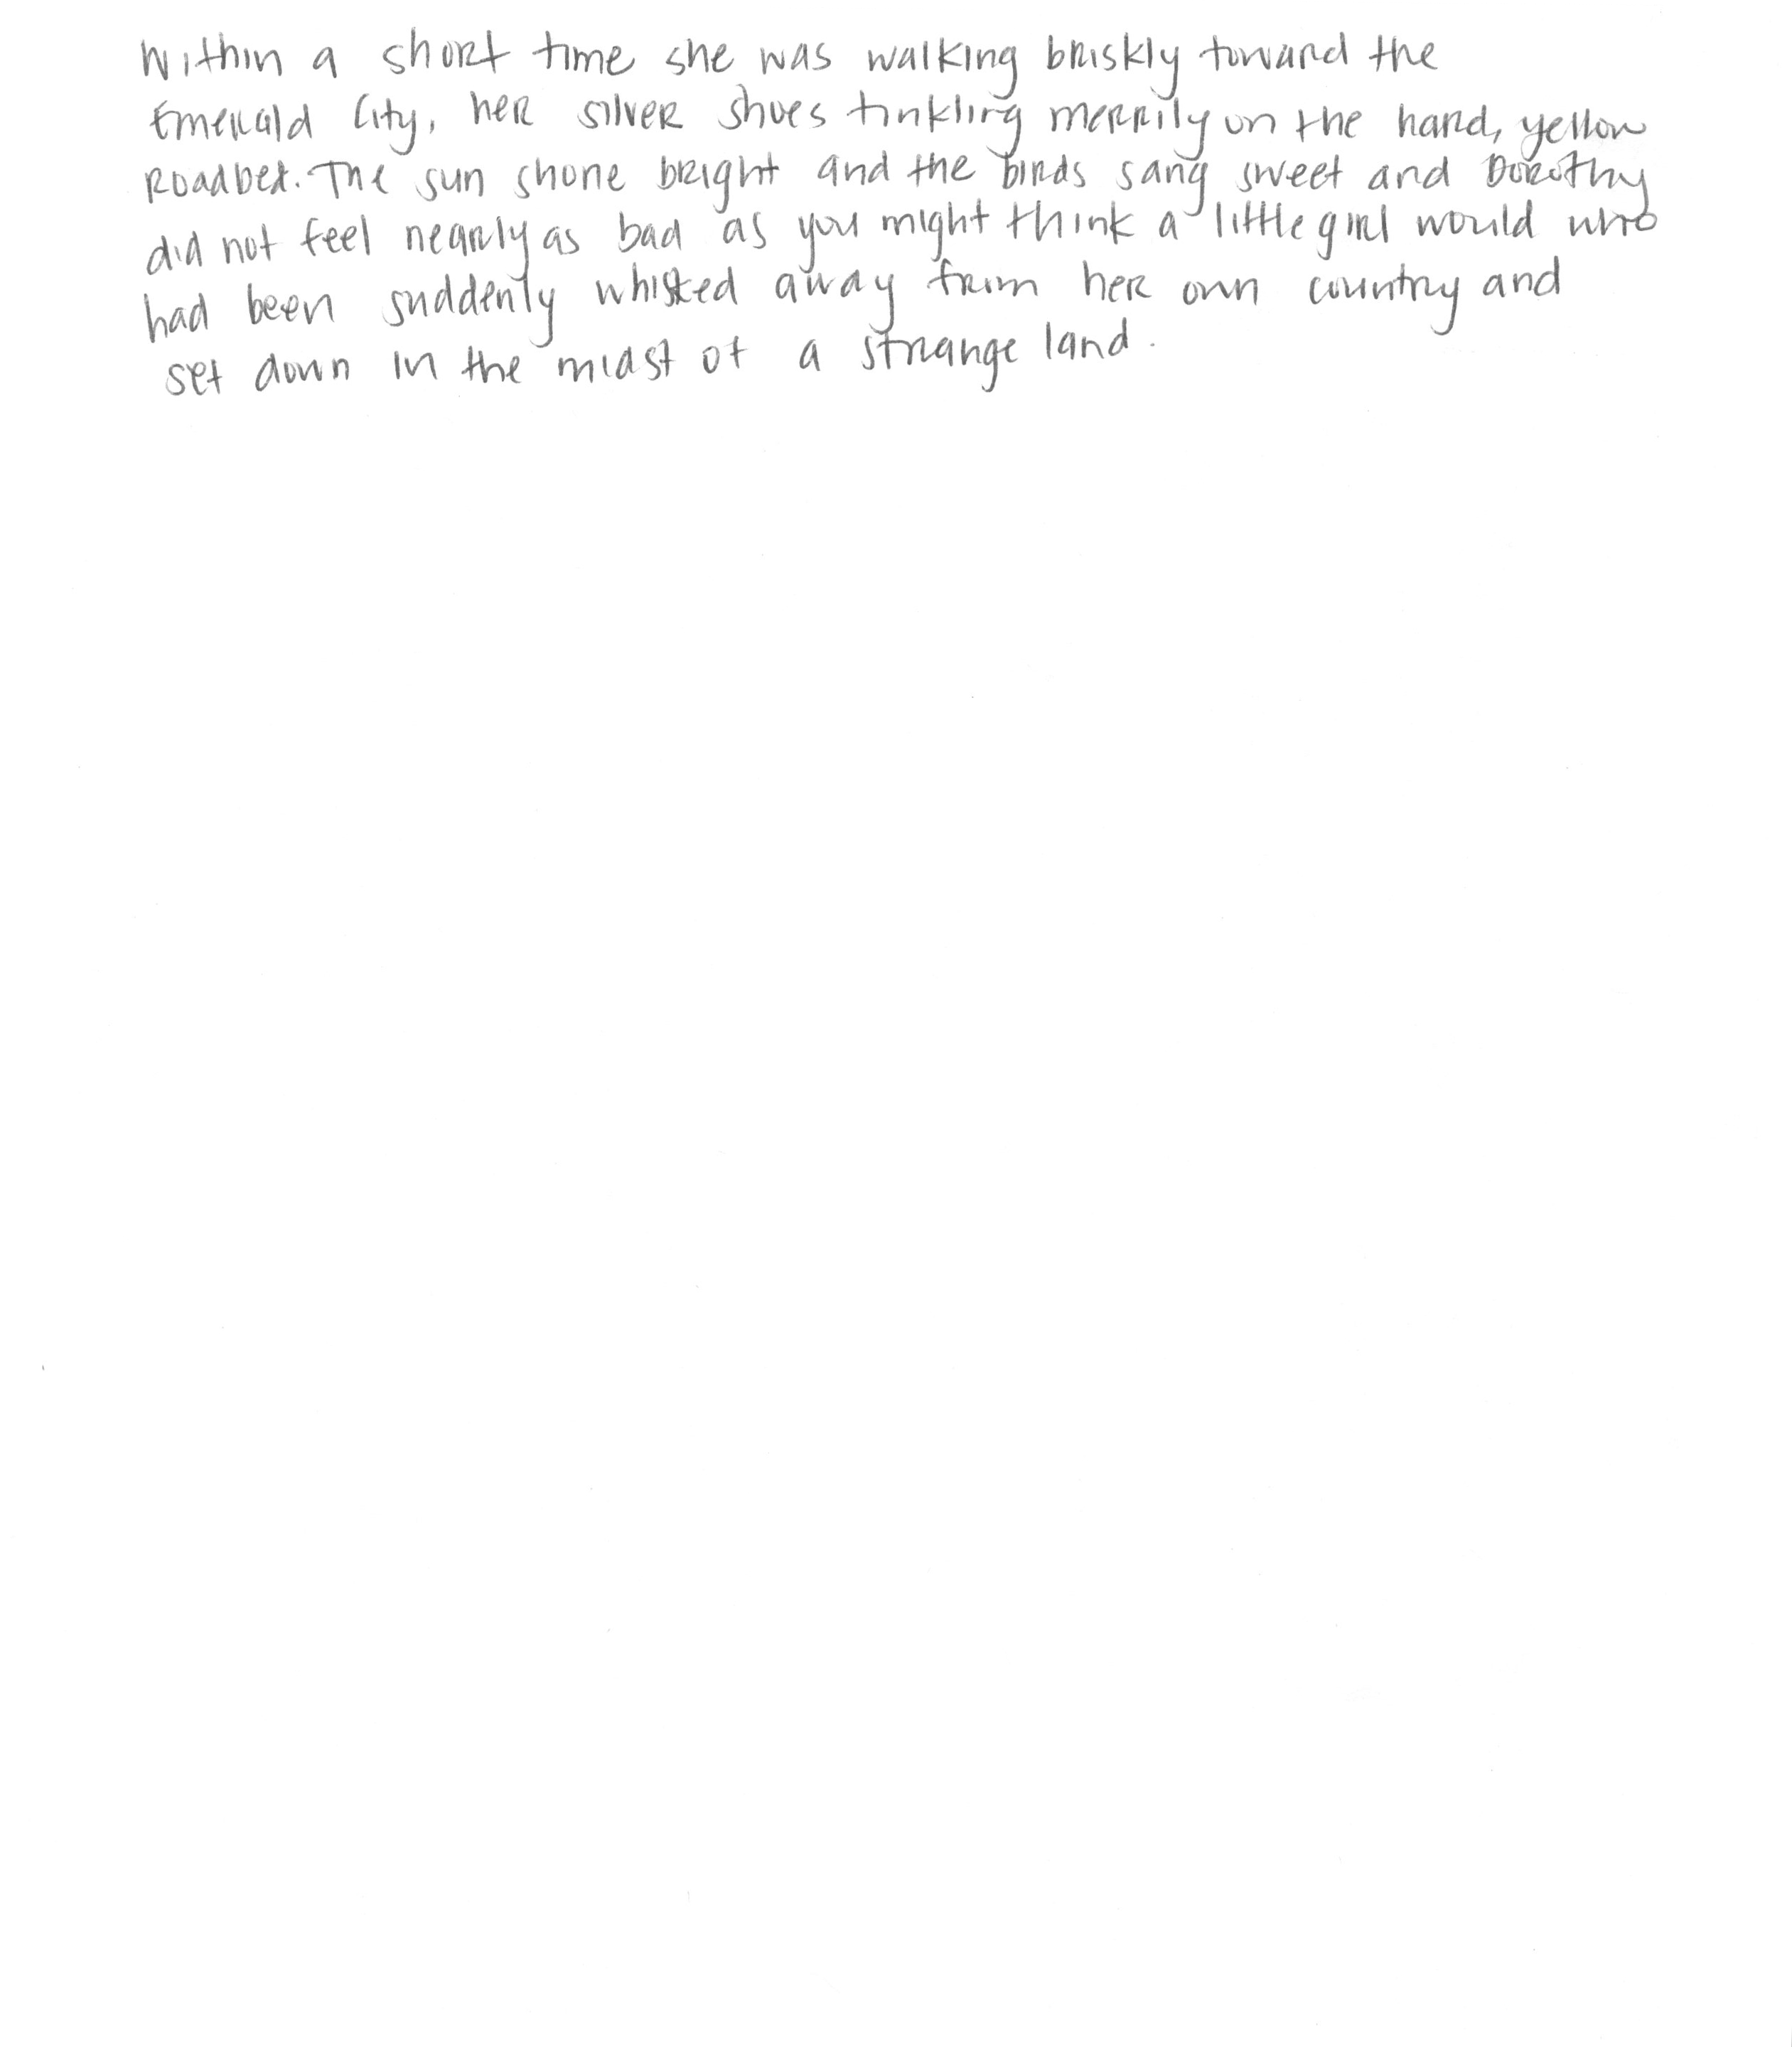 Within a short time she was walking briskly toward the
Emerald City, her silver shoes tinkling merrily on the hard, yellow
Roadbed. The sun shone bright and the birds sang sweet and Dorothy
did not feel nearly as bad as you might think a little girl would who
had been suddenly whisked away from her own country and
set down in the midst of a strange land.